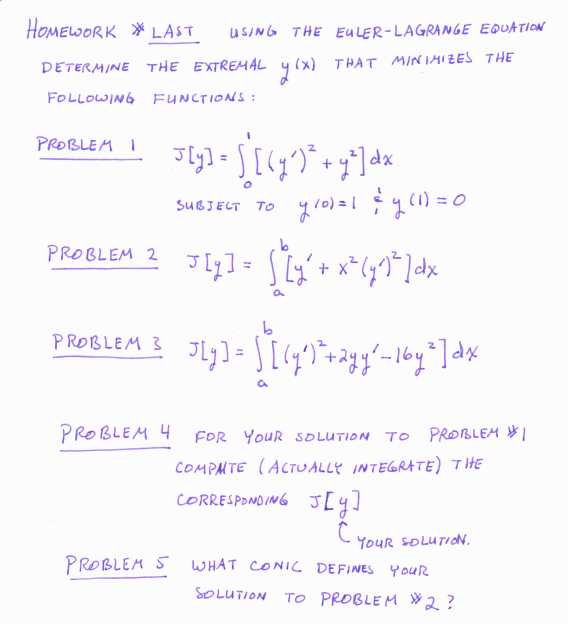 HOMEWORK # LAST USING THE EULER-LAGRANGE EQUATION
DETERMINE THE EXTREMAL y(x) THAT MINIMIZES THE
FOLLOWING FUNCTIONS:
PROBLEM 1 J[y] = ∫₀¹ [(y')² + y²] dx
SUBJECT TO y(0)=1 & y(1)=0
PROBLEM 2 J[y] = ∫ₐᵇ [y' + x²(y')²] dx
PROBLEM 3 J[y] = ∫ₐᵇ [(y')² + 2yy' - 16y²] dx
PROBLEM 4 FOR YOUR SOLUTION TO PROBLEM #1
COMPUTE (ACTUALLY INTEGRATE) THE
CORRESPONDING J[y]
YOUR SOLUTION.
PROBLEM 5 WHAT CONIC DEFINES YOUR
SOLUTION TO PROBLEM #2?